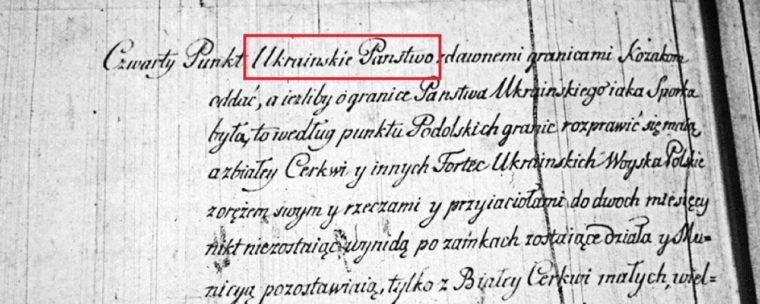 Czwarty Punkt Ukrainskie Panstwo zdawnemi granicami Kozakom
oddać, a iezliby o granice Panstwa Ukrainskiego iaka Sporka
była, to według punktu Podolskich granic rozprawić się maią
a zbiałey Cerkwi y innych Fortec Ukrainskich Woyska Polskie
z orężem swym y rzeczami y przyiaciołami do dwoch miesięcy
nikt niezostaiąc wynidą po zamkach zostaiące działa y Mu=
nicyą pozostawiaią, tylko z Białey Cerkwi małych, wiel=